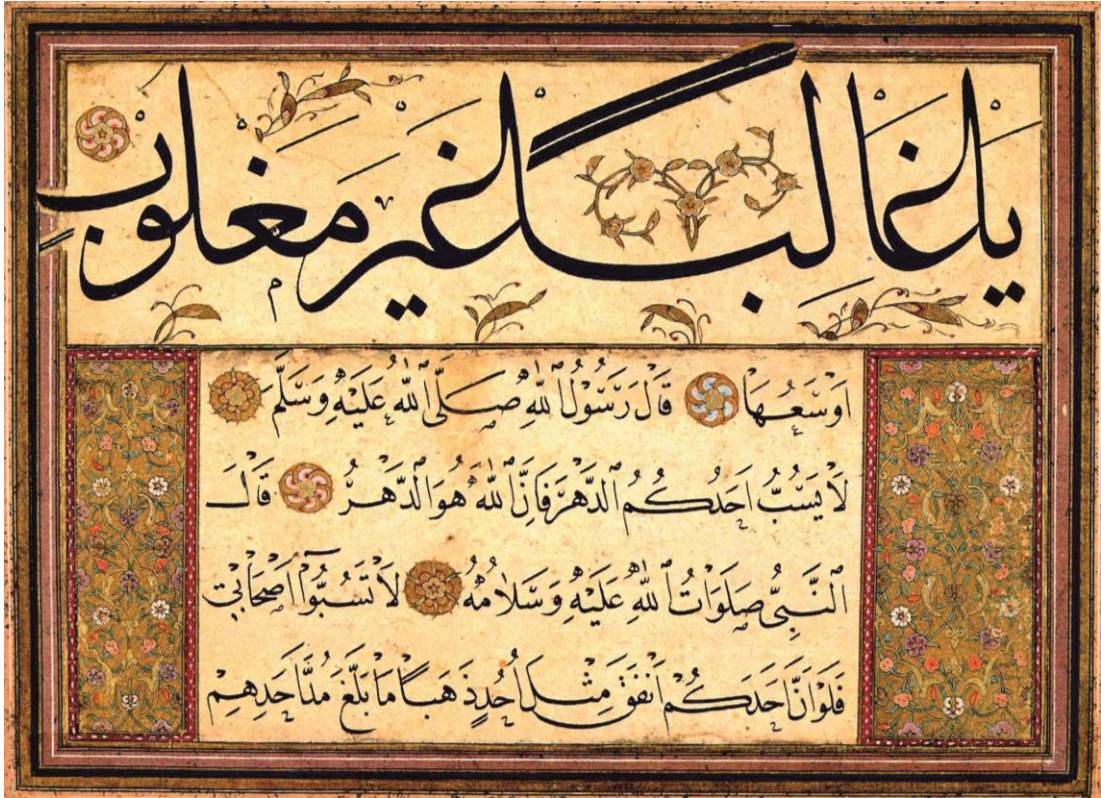 يَا غَالِبًا غَيْرَ مَغْلُوبٍ
اَوْسَعُهَا قَالَ رَسُولُ اللهِ صَلَّى اللهُ عَلَيْهِ وَسَلَّمَ
لَا يَسُبُّ اَحَدُكُمُ الدَّهْرَ فَاِنَّ اللهَ هُوَ الدَّهْرُ قَالَ
النَّبِىُّ صَلَوَاتُ اللهِ عَلَيْهِ وَسَلَامُهُ لَا تَسُبُّوا اَصْحَابِى
فَلَوْ اَنَّ اَحَدَكُمْ اَنْفَقَ مِثْلَ اُحُدٍ ذَهَبًا مَا بَلَغَ مُدَّ اَحَدِهِمْ